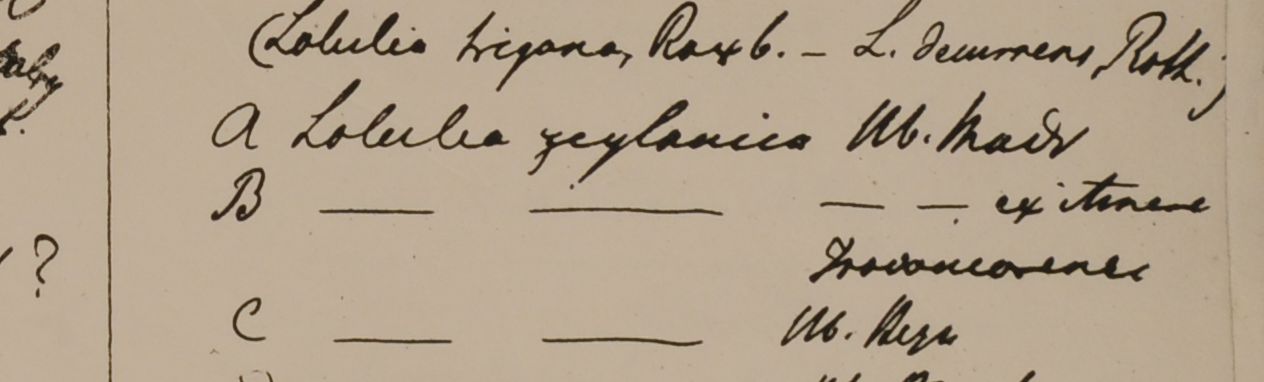 (Lobelia trigona, Roxb. - L. decurrens, Roth.)
A Lobelia zeylanica Hb. Madr
B — — — — ex itinere
Travancorense
C — — Hb. Heyn
?